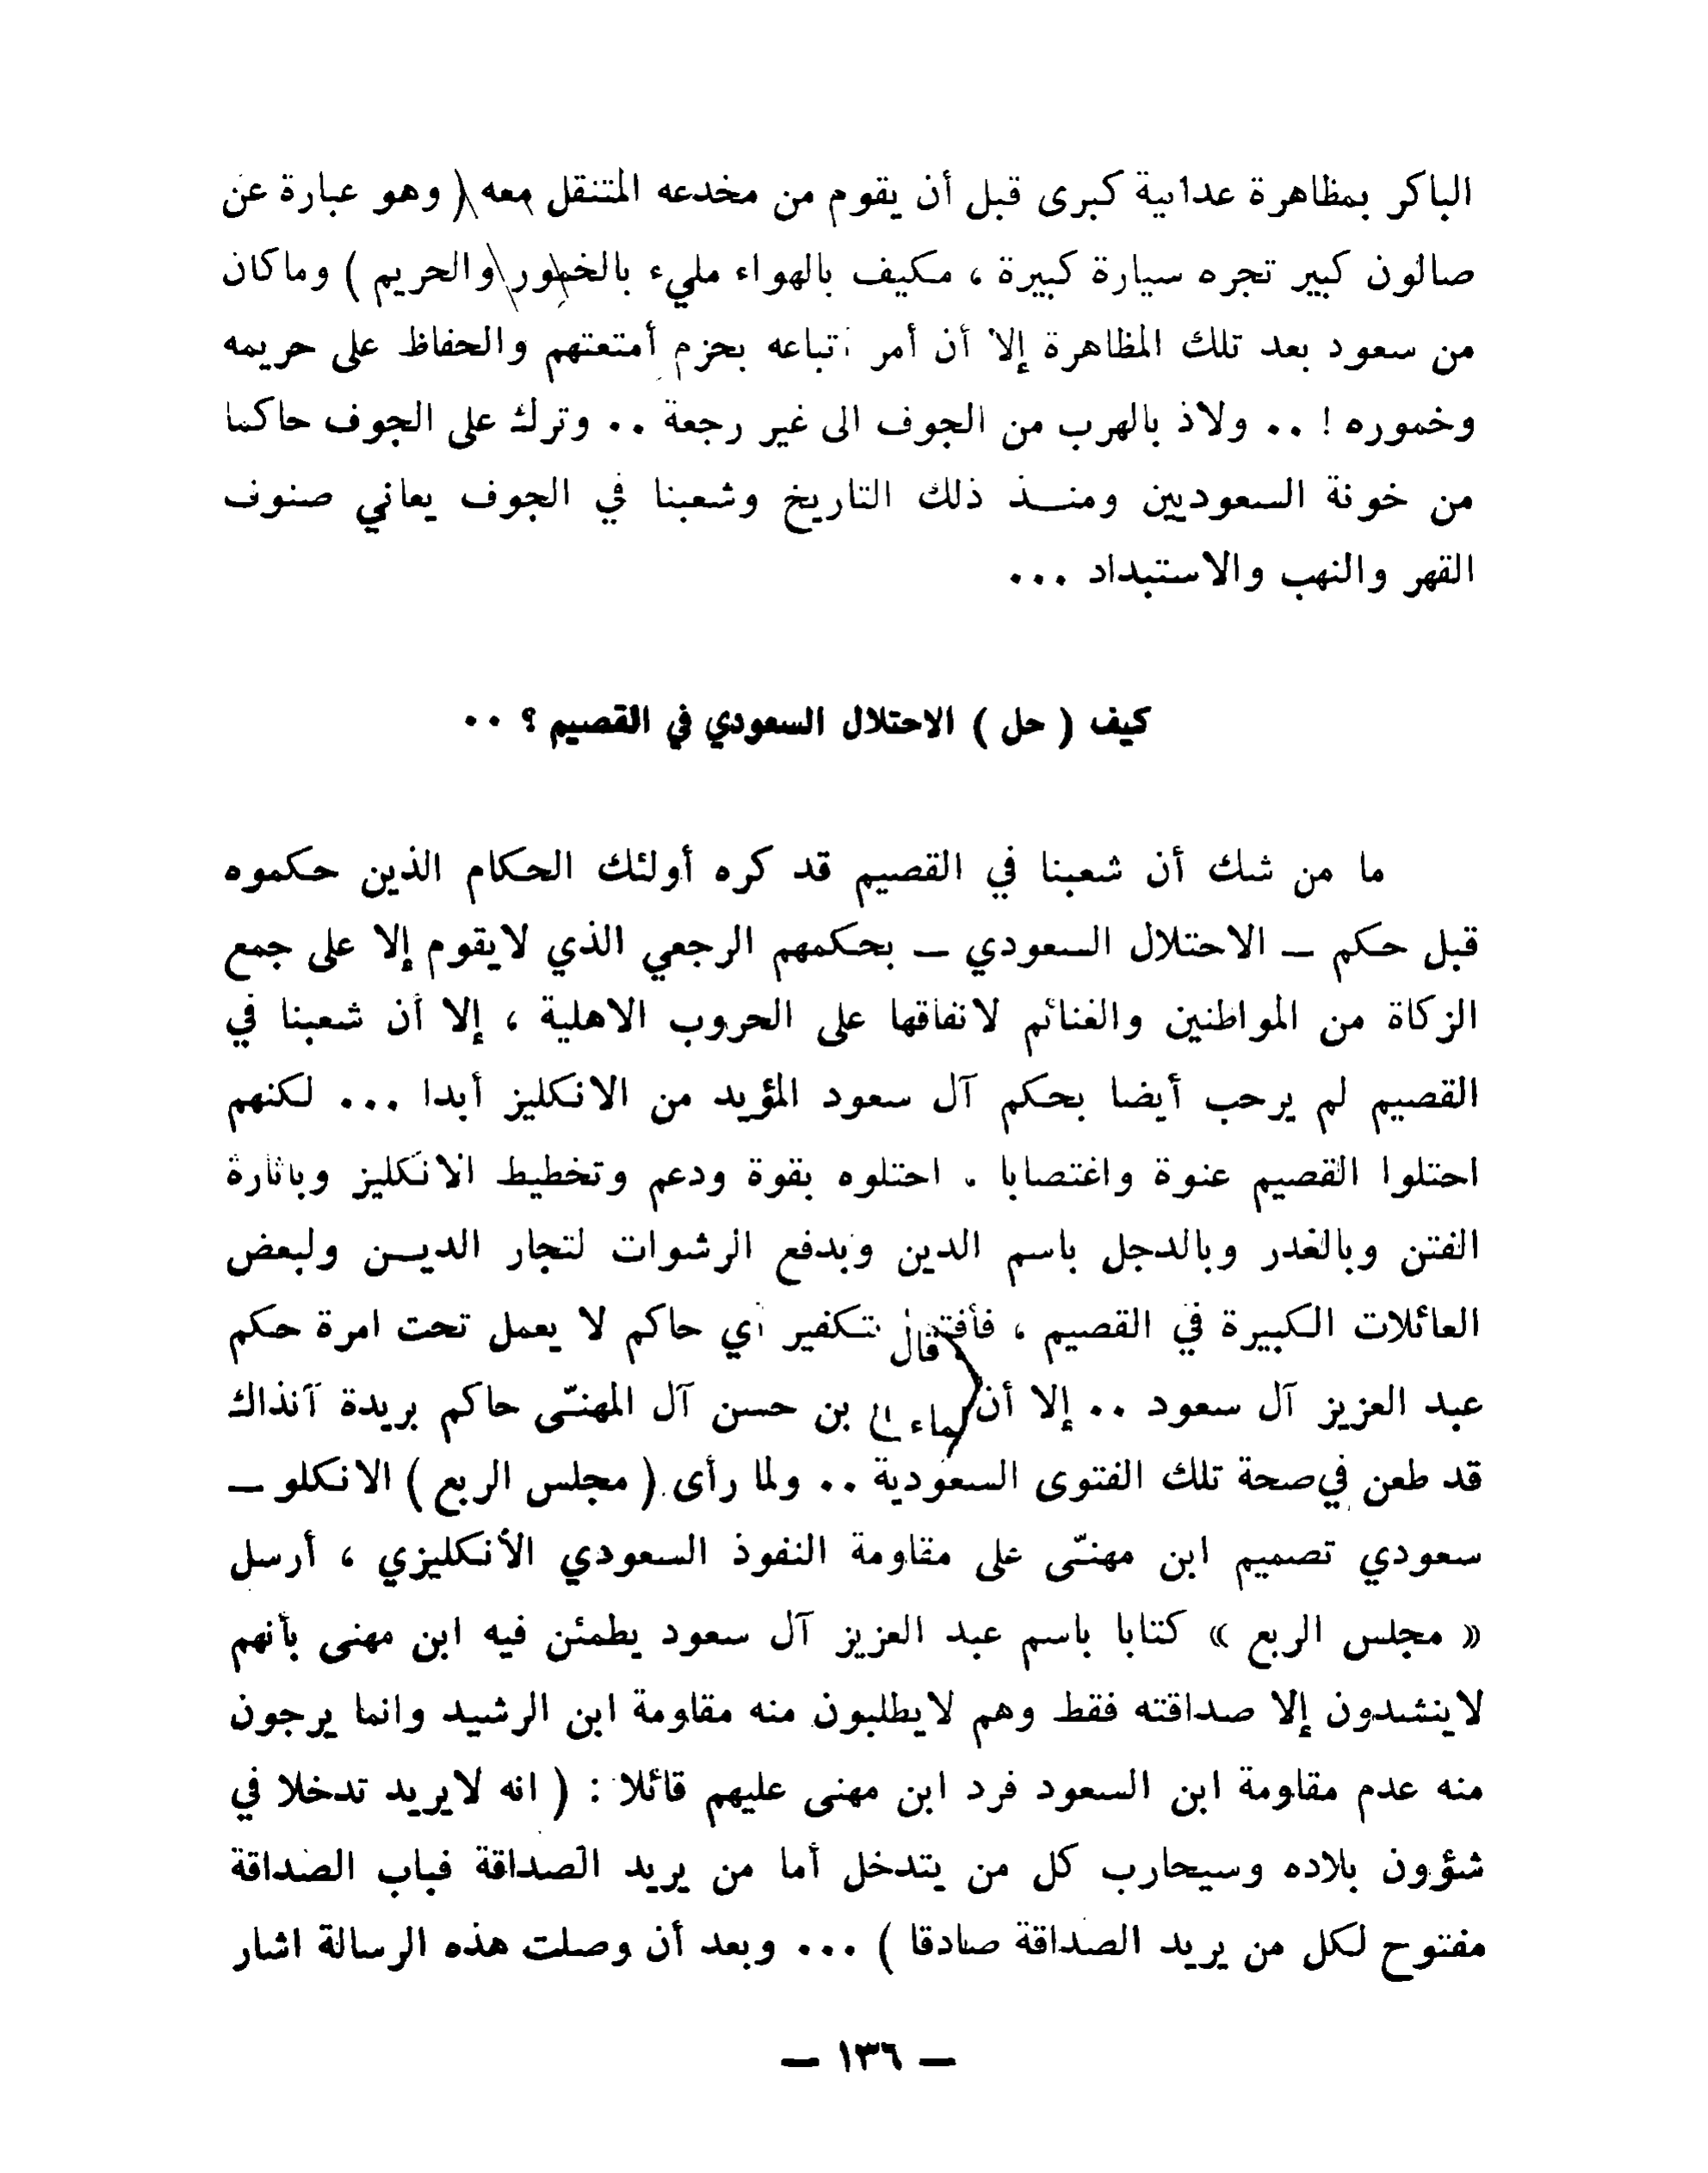 الباكر بمظاهرة عدائية كبرى قبل أن يقوم من مخدعه المتنقل معه ( وهو عبارة عن
صالون كبير تجره سيارة كبيرة ، مكيف بالهواء مليء بالخمور والحريم ) وماكان
من سعود بعد تلك المظاهرة إلا أن أمر أتباعه بحزم أمتعتهم والحفاظ على حريمه
وخموره ! .. ولاذ بالهرب من الجوف الى غير رجعة .. وترك على الجوف حاكما
من خونة السعوديين ومنـــذ ذلك التاريخ وشعبنا في الجوف يعاني صنوف
القهر والنهب والاستبداد ...
كيف ( حل ) الاحتلال السعودي في القصيم ؟ ..
ما من شك أن شعبنا في القصيم قد كره أولئك الحكام الذين حكموه
قبل حكم – الاحتلال السعودي – بحكمهم الرجعي الذي لايقوم إلا على جمع
الزكاة من المواطنين والغنائم لانفاقها على الحروب الاهلية ، إلا أن شعبنا في
القصيم لم يرحب أيضا بحكم آل سعود المؤيد من الانكليز أبدا ... لكنهم
احتلوا القصيم عنوة واغتصابا . احتلوه بقوة ودعم وتخطيط الانكليز وباثارة
الفتن وبالغدر وبالدجل باسم الدين وبدفع الرشوات لتجار الديــن ولبعض
العائلات الكبيرة في القصيم ، بتكفير أي حاكم لا يعمل تحت امرة حكم
عبد العزيز آل سعود .. إلا أن بن حسن آل المهنّى حاكم بريدة آنذاك
قد طعن في صحة تلك الفتوى السعودية .. ولما رأى ( مجلس الربع ) الانكلو –
سعودي تصميم ابن مهنّى على مقاومة النفوذ السعودي الأنكليزي ، أرسل
« مجلس الربع » كتابا باسم عبد العزيز آل سعود يطمئن فيه ابن مهنى بأنهم
لاينشدون إلا صداقته فقط وهم لايطلبون منه مقاومة ابن الرشيد وانما يرجون
منه عدم مقاومة ابن السعود فرد ابن مهنى عليهم قائلا : ( انه لايريد تدخلا في
شؤون بلاده وسيحارب كل من يتدخل أما من يريد الصداقة فباب الصداقة
مفتوح لكل من يريد الصداقة صادقا ) ... وبعد أن وصلت هذه الرسالة اشار
– ١٣٦ –